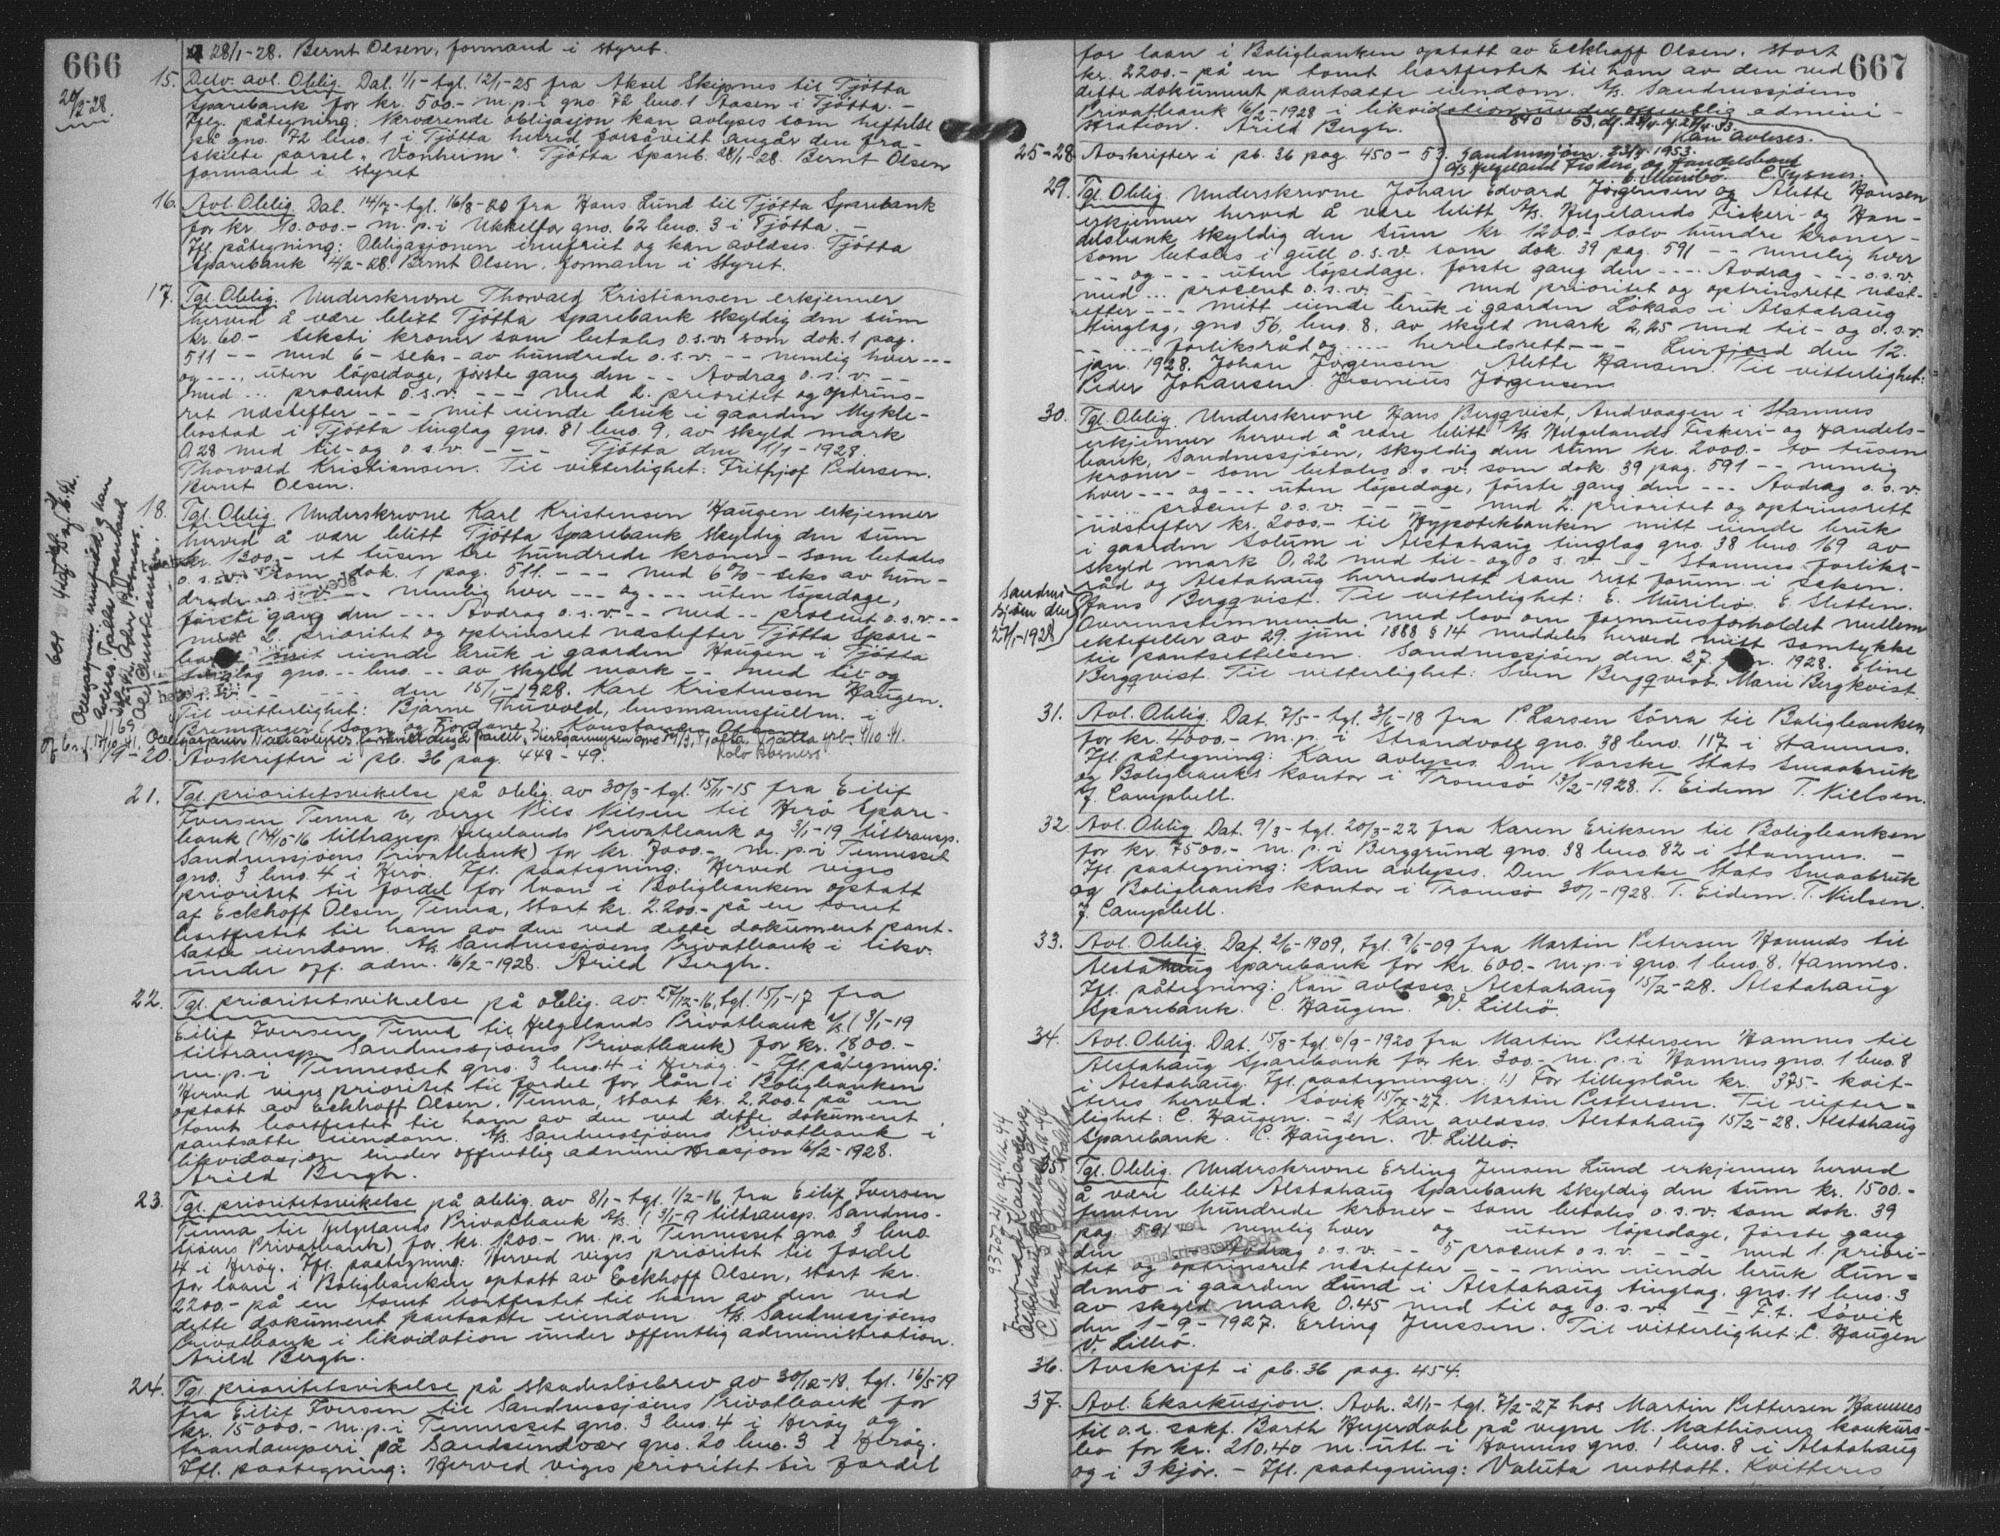 666
28/1-28. Bernt Olsen, formand i styret.
20/2-28.
15. Delv. avl. Oblig. Dat. 1/1 - tgl. 12/1-25 fra Aksel Skipnes til Tjötta
Sparebank for kr. 500.- m.p.i gno. 72 bno. 1 Aasen i Tjötta. -
Iflg. påtegning: Nærværende obligasjon kan avlyses som heftelse
på gno. 72 bno. 1 i Tjötta herred forsåvidt angår den fra-
skilte parsel "Vonheim". Tjötta Spareb. 28/1-28. Bernt Olsen
formand i styret
16. Avl. Oblig. Dat. 14/7 - tgl. 16/8-20 fra Hans Lund til Tjötta Sparebank
for kr. 10.000.- m.p.i Ukkelfor gno. 62 bno. 3 i Tjötta. -
Ifl. påtegning: Obligasjonen innfriet og kan avlæses. Tjötta
Sparebank 4/2-28. Bernt Olsen, formann i styret.
17. Tgl. Oblig. Underskrevne Thorvald Kristiansen erkjenner
herved å være blitt Tjötta Sparebank skyldig den sum
kr. 60 - seksti kroner som betales o.s.v. som dok. 1 pag.
511 - - med 6 - seks - av hundrede o.s.v. - - nemlig hver - - -
og - - -, uten löpedage, förste gang den - - Avdrag o.s.v. - -
med ... procent o.s.v. - - - med 2. prioritet og optrins-
ret næstefter - - - mit eiende bruk i gaarden Mykle-
bostad i Tjötta tinglag gno. 81 bno. 9, av skyld mark
0,28 med til- og o.s.v. - - - Tjötta den 1/1 - 1928.
Thorvald Kristiansen. Til vitterlighet: Fritjof Pedersen.
Bernt Olsen.
18. Tgl. Oblig. Underskrevne Karl Kristensen Haugen erkjenner
herved å være blitt Tjötta Sparebank skyldig den sum
kr. 1300,- et tusen tre hundrede kroner - som betales
o.s.v. som dok. 1 pag. 511. - - - - med 6% - seks av hun-
drede o.s.v. - - nemlig hver - - - og - - - uten löpedage,
förste gang den - - - Avdrag o.s.v. - - med - - procent o.s.v. - - -
med 2. prioritet og optrinsret næstefter Tjötta Spare-
bank mit eiende bruk i gaarden Haugen i Tjötta
tinglag gno. - - bno. - - av skyld mark - - med til og
o.s.v. - - - - den 15/1 - 1928. Karl Kristensen Haugen.
Til vitterlighet: Bjarne Thuvold, lensmannsfullm. i
Bremanger (Sogn og Fjordane).
19-20. Avskrifter i pb. 36 pag. 448-49.
21. Tgl. prioritetsvikelse på oblig. av 30/3 - tgl. 15/11-15 fra Eilif
Iversen Tenna v. verge Nils Nilsen til Herö Spare-
bank (14/10-16 tiltransp. Helgelands Privatbank og 3/1-19 tiltransp.
Sandnessjöens Privatbank) for kr. 7000.- m.p.i Tennesset
gno. 3 bno. 4 i Herö. Ifl. paategning: Herved viges
prioritet til fordel for laan i Boligbanken optatt
af Eckhoff Olsen, Tenna, stort kr. 2.200.- på en tomt
bortfestet til ham av den ved dette dokument pant-
satte eiendom. A/S Sandnessjøens Privatbank i likv.
under off. adm. 16/2-1928. Arild Bergh.
22. Tgl. prioritetsvikelse på oblig. av 27/12-16, tgl. 15/1-17 fra
Eilif Iversen, Tenna til Helgelands Privatbank A/S (3/1-19
tiltransp. Sandnessjøens Privatbank) for kr. 1800.-
m.p.i Tennesset gno. 3 bno. 4 i Herøy. - Ifl. påtegning:
Herved viges prioritet til fordel for lån i Boligbanken
optatt av Eckhoff Olsen, Tenna, stort kr. 2.200.- på en
tomt bortfestet til ham av den ved dette dokument
pantsatte eiendom. A/S Sandnessjøens Privatbank i
likvidasjon under offentlig administrasjon 16/2-1928.
Arild Bergh.
23. Tgl. prioritetsvikelse på oblig. av 8/1 - tgl. 1/2-16 fra Eilif Iversen
Tenna til Helgelands Privatbank A/S. (3/1-9 tiltransp. Sandnes-
sjöens Privatbank) for kr. 1200.- m.p.i Tennesset gno. 3 bno.
4 i Herøy. Ifl. paategning: Herved viges prioritet til fordel
for laan i Boligbanken optatt av Eckhoff Olsen, stort kr.
2200.- på en tomt bortfestet til ham av den ved
dette dokument pantsatte eiendom A/S Sandnessjøens
Privatbank i likvidation under offentlig administration.
Arild Bergh.
24. Tgl. prioritetsvikelse på skadesløsbrev av 30/12-18, tgl. 16/5-19
fra Eilif Iversen til Sandnessjøens Privatbank for
kr. 15000.- m.p.i Tennesset gno. 3 bno. 4 i Herøy og
trandamperi på Sandsundvær gno. 20 bno. 3 i Herøy.
Ifl. paategning: Herved viges prioritet til fordel
667
for laan i Boligbanken optatt av Eckhoff Olsen, stort
kr. 2200.- på en tomt bortfestet til ham av den ved
dette dokument pantsatte eiendom. A/S Sandnessjøens
Privatbank 16/2-1928 i likvidation under offentlig admini-
stration. Arild Bergh.
Kan avleses.
Sandnessjøen, 23/4-1953.
A/S Helgeland Fiskeri og Handelsbank
25-28. Avskrifter i pb. 36 pag. 450-53.
29. Tgl. Oblig. Underskrevne Johan Edvard Jörgensen og Alette Hansen
erkjenner herved å være blitt A/S. Helgelands Fiskeri- og Han-
delsbank skyldig den sum kr 1200.- tolv hundre kroner -
som betales i gull o.s.v. som dok. 39 pag. 591 - - nemlig hver
- - - og - - - uten löpedage, förste gang den - - - Avdrag - - o.s.v.
med ... procent o.s.v. - - - med prioritet og optrinsrett næst-
efter - - - mitt eiende bruk i gaarden Lökaas i Alstahaug
tinglag, gno 56, bno. 8, av skyld mark 2,25 med til- og o.s.v.
- - ... forliksråd og .... herredsrett - - - Leirfjord den 12.
jan. 1928. Johan Jörgensen Alette Hansen. Til vitterlighet:
Peder Johansen Jesenius Jörgensen
30. Tgl. Oblig. Underskrevne Hans Bergqvist, Andvaagen i Stamnes
erkjenner herved å være blitt A/S Helgelands Fiskeri- og Handels-
bank, Sandnessjöen, skyldig den sum kr. 2000.- to tusen
kroner - som betales o.s.v. som dok 39 pag. 591 - - nemlig
hver - - - og - - - uten löpedage, förste gang den - - - Avdrag o.s.v.
... procent o.s.v. - - - - med 2. prioritet og optrinsrett
næstefter kr. 2000.- til Hypotekbanken mitt eiende bruk
i gaarden Solum i Alstahaug tinglag gno. 38 bno 169 av
skyld mark 0,22 med til- og o.s.v. - - Stamnes forliks-
råd og Alstahaug herredsrett som rett forum i saken.
Sandnes
sjöen den
27/1-1928
Hans Bergqvist. Til vitterlighet: E. Muribö. E. Sletten.
Overensstemmende med lov om formuesforholdet mellem
ektefeller av 29. juni 1888 § 14 meddeles herved mitt samtykke
til pantsettelsen. Sandnessjøen den 27. jan. 1928. Eline
Bergqvist. Til vitterlighet: Sven Bergqvist. Marie Bergkvist.
31. Avl. Oblig. Dat. 7/5 - tgl. 3/6-18 fra P. Larsen Sörra til Boligbanken
for kr. 4000.- m.p.i Strandvoll gno. 38 bno. 117 i Stamnes.
Ifl. påtegning: Kan avlyses. Den Norske Stats Smaabruk
og Boligbanks kontor i Tromsö 13/2-1928. T. Eidem T. Nielsen.
J. Campbell.
32. Avl. Oblig. Dat. 9/3 - tgl. 20/3-22 fra Karen Eriksen til Boligbanken
for kr. 7500.- m.p.i Berggrund gno. 38 bno. 82 i Stamnes. -
Ifl. paategning: Kan avlyses. Den Norske Stats Smaabruk
og Boligbanks kontor i Tromsö 30/1-1928. T. Eidem. T. Nielsen.
J. Campbell.
33. Avl. Oblig. Dat. 2/6-1909, tgl. 9/6-09 fra Martin Petersen Hamnes til
Alstahaug Sparebank for kr. 600.- m.p.i gno. 1 bno. 8, Hamnes.
Ifl. påtegning: Kan avlæses. Alstahaug 15/2-28. Alstahaug
Sparebank. C. Haugen. V. Lillö.
34. Avl. Oblig. Dat. 15/8 - tgl. 6/9-1920 fra Martin Pettersen Hamnes til
Alstahaug Sparebank for kr. 300.- m.p.i Hamnes gno. 1 bno. 8
i Alstahaug. Ifl. paategninger: 1.) For tillegslån kr. 375.- kvit-
teres herved. Søvik 15/7-27. Martin Pettersen. Til vitter-
lighet: C. Haugen. - 2) Kan avlæses. Alstahaug 15/2-28. Alstahaug
Sparebank. C. Haugen. V. Lillö.
Tgl. Oblig. Underskrevne Erling Jensen Lund erkjenner herved
å være blitt Alstahaug Sparebank skyldig den sum kr. 1500.-
femten hundrede kroner - som betales o.s.v. som dok. 39
pag. 591 nemlig hver og uten löpedage, förste gang
den - Avdrag o.s.v. - - 5 procent o.s.v. - - - med 1. priori-
tet og optrinsret næstefter - - - min eiende bruk Lun-
demo i gaarden Lund i Alstahaug tinglag. gno. 11 bno. 3
av skyld mark 0.45 med til og o.s.v. - - F.t. Søvik
den 1 - 9 - 1927. Erling Jenssen. Til vitterlighet: C. Haugen
V. Lillö.
36. Avskrift i pb. 36 pag. 454.
37. Avl. Eksekusjon. Avh. 21/1 - tgl. 7/2-27 hos Martin Pettersen Hamnes
til o.r. sakf. Barth Heyerdahl på vegne M. Mathisens konkurs-
bo for kr. 210,40 m. utl. i Hamnes gno. 1 bno. 8 i Alstahaug
og i 3 kjør. - Ifl. paategning: Valuta mottatt. Kvitteres